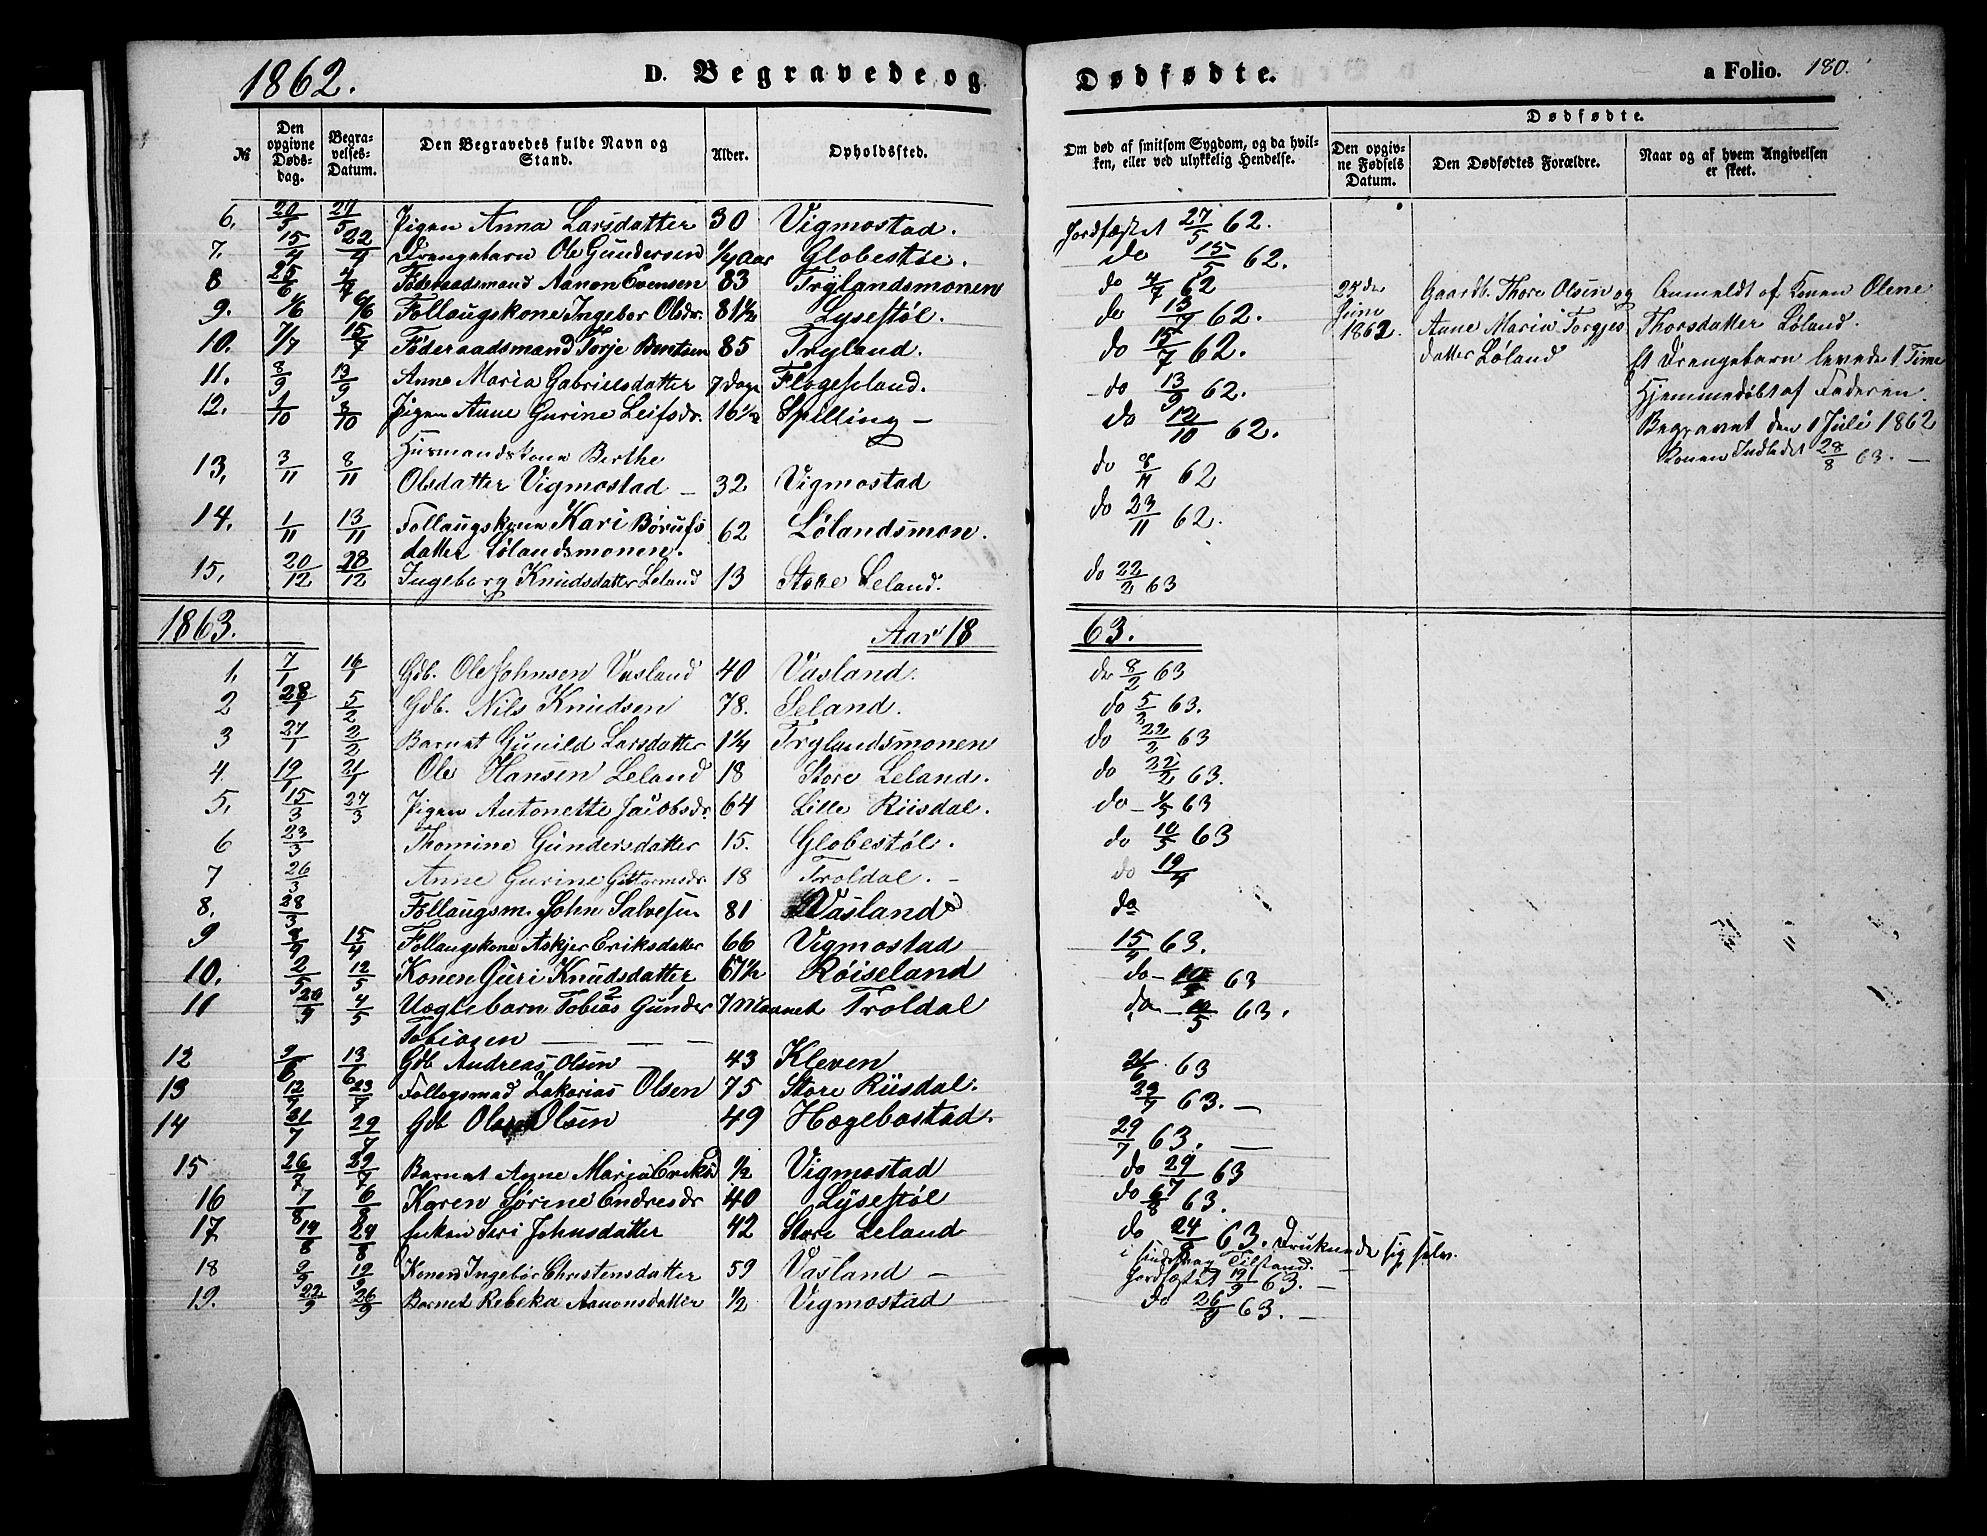 1862. D. Begravede og Dødfødte. a Folio. 180.
No | Den opgivne Døds-dag. | Begra-velses-Datum. | Den Begravedes fulde Navn og Stand. | Alder. | Opholdssted. | Om død af smitsom Sygdom, og da hvil-ken, eller ved ulykkelig Hendelse. | Dødfødte. | Den opgiv-ne Fødsels Datum. | Den Dødfødtes Forældre. | Naar og af hvem Angivelsen er skeet.
6. 20/5 27/5 Pigen Anna Larsdatter 30 Vigmostad. Jordfæstet 27/5 62.
7. 15/4 22/4 Drengebarn Ole Gundersen 1/4 Aar Globestøl. do 15/5 62.
8 25/6 4/7 Føderaadsmand Aanon Evensen 83 Trylandsmonen do 4/7 62
9. 1/6 6/6 Follaugskone Ingebor Olsdr. 81 1/2 Lysestøl. do 13/7 62.
10. 7/7 15/7 Føderaadsmand Torje Bentsen 85 Tryland. do 15/7 62.
11. 8/9 13/9 Anne Maria Gabrielsdatter 7 Dage Flogeland. do 13/9 62.
12. 1/10 3/10 Pigen Anne Gurine Leifsdr. 16 1/2 Spilling – do 12/10 62.
13. 3/11 8/11 Husmandskone Berthe
Olsdatter Vigmostad – 32 Vigmostad do 8/11 62
14. 1/11 13/11 Follaugskone Kari Børufs
datter Lølandsmonen. 62 Lølandsmon. do 23/11 62.
15. 20/12 28/12 Ingeborg Knudsdatter Leland 13 Store Leland. do 22/2 63
Juni
1862.
Gaardb. Thore Olsen og
Anne Maria Torgjes
datter Løland
Anmeldt af Konen Olene
Thorsdatter Løland.
Et Drengebarn levede 1 Time
Hjemmedøbt af Faderen.
Begravet den 1 Juli 1862
Konen Indledet 28/8 63. –
1863. Aar 18 63.
1. 7/1 16/1 Gdb. Ole Johnsen Vasland 40 Vasland. do 8/2 63
2 28/1 5/2 Gdb. Nils Knudsen 78. Leland. do 5/2 63.
3 27/1 2/2 Barnet Gunild Larsdatter 1 1/4 Trylandsmonen do 22/2 63
4. 19/1 21/1 Ole Hansen Leland 18 Store Leland. do 22/2 63.
5. 15/3 27/3 Pigen Antonette Jacobsdr. 64 Lille Riisdal. do – 1/5 63
6 23/3 Thomine Gundersdatter 15. Globestøl. do 10/5 63
7 26/3 Anne Gurine Gittormsdr. 18 Troldal. – do 19/4
8. 28/3 Follaugsm. John Salvesen 81 Vasland do
9 15/4 Follaugskone Askjer Eriksdatter 66 Vigmostad 15/4 63.
10. 2/5 12/5 Konen Guri Knudsdatter 67 1/2 Røiseland do – 10/5 63
11 4/5 Uægtebarn Tobias Gunder 7 Maaneder Troldal do – 10/5 63.
Tobiasen – – –
12 9/6 13/6 Gdb. Andreas Olsen 43 Kleven 21/6 63
13 12/7 23/7 Follogsmad Zakarias Olsen 75 Store Riisdal. 29/7 63. –
14 21/7 29/7 Gdb Ole Olsen 49 Hægebostad. 29/7 63. –
15 26/7 29/7 Barnet Anne Maria Eriksd 1/2 Vigmostad do 29/7 63
16 7/8 6/8 Karen Sørine Endresdr 40 Lysestøl do 6/8 63.
17. 19/8 24/8 Enken Siri Johnsdatter 42 Store Leland do 24/8 63. Druknede sig selv.
i sindssvag Tilstand.
18 9/9 19/9 Konen Ingebor Christensdatter 59 Vasland – Jordfæstet 19/9 63. –
19. 22/9 26/9 Barnet Rebeka Aanonsdatter 1/2 Vigmostad do 26/9 63. –